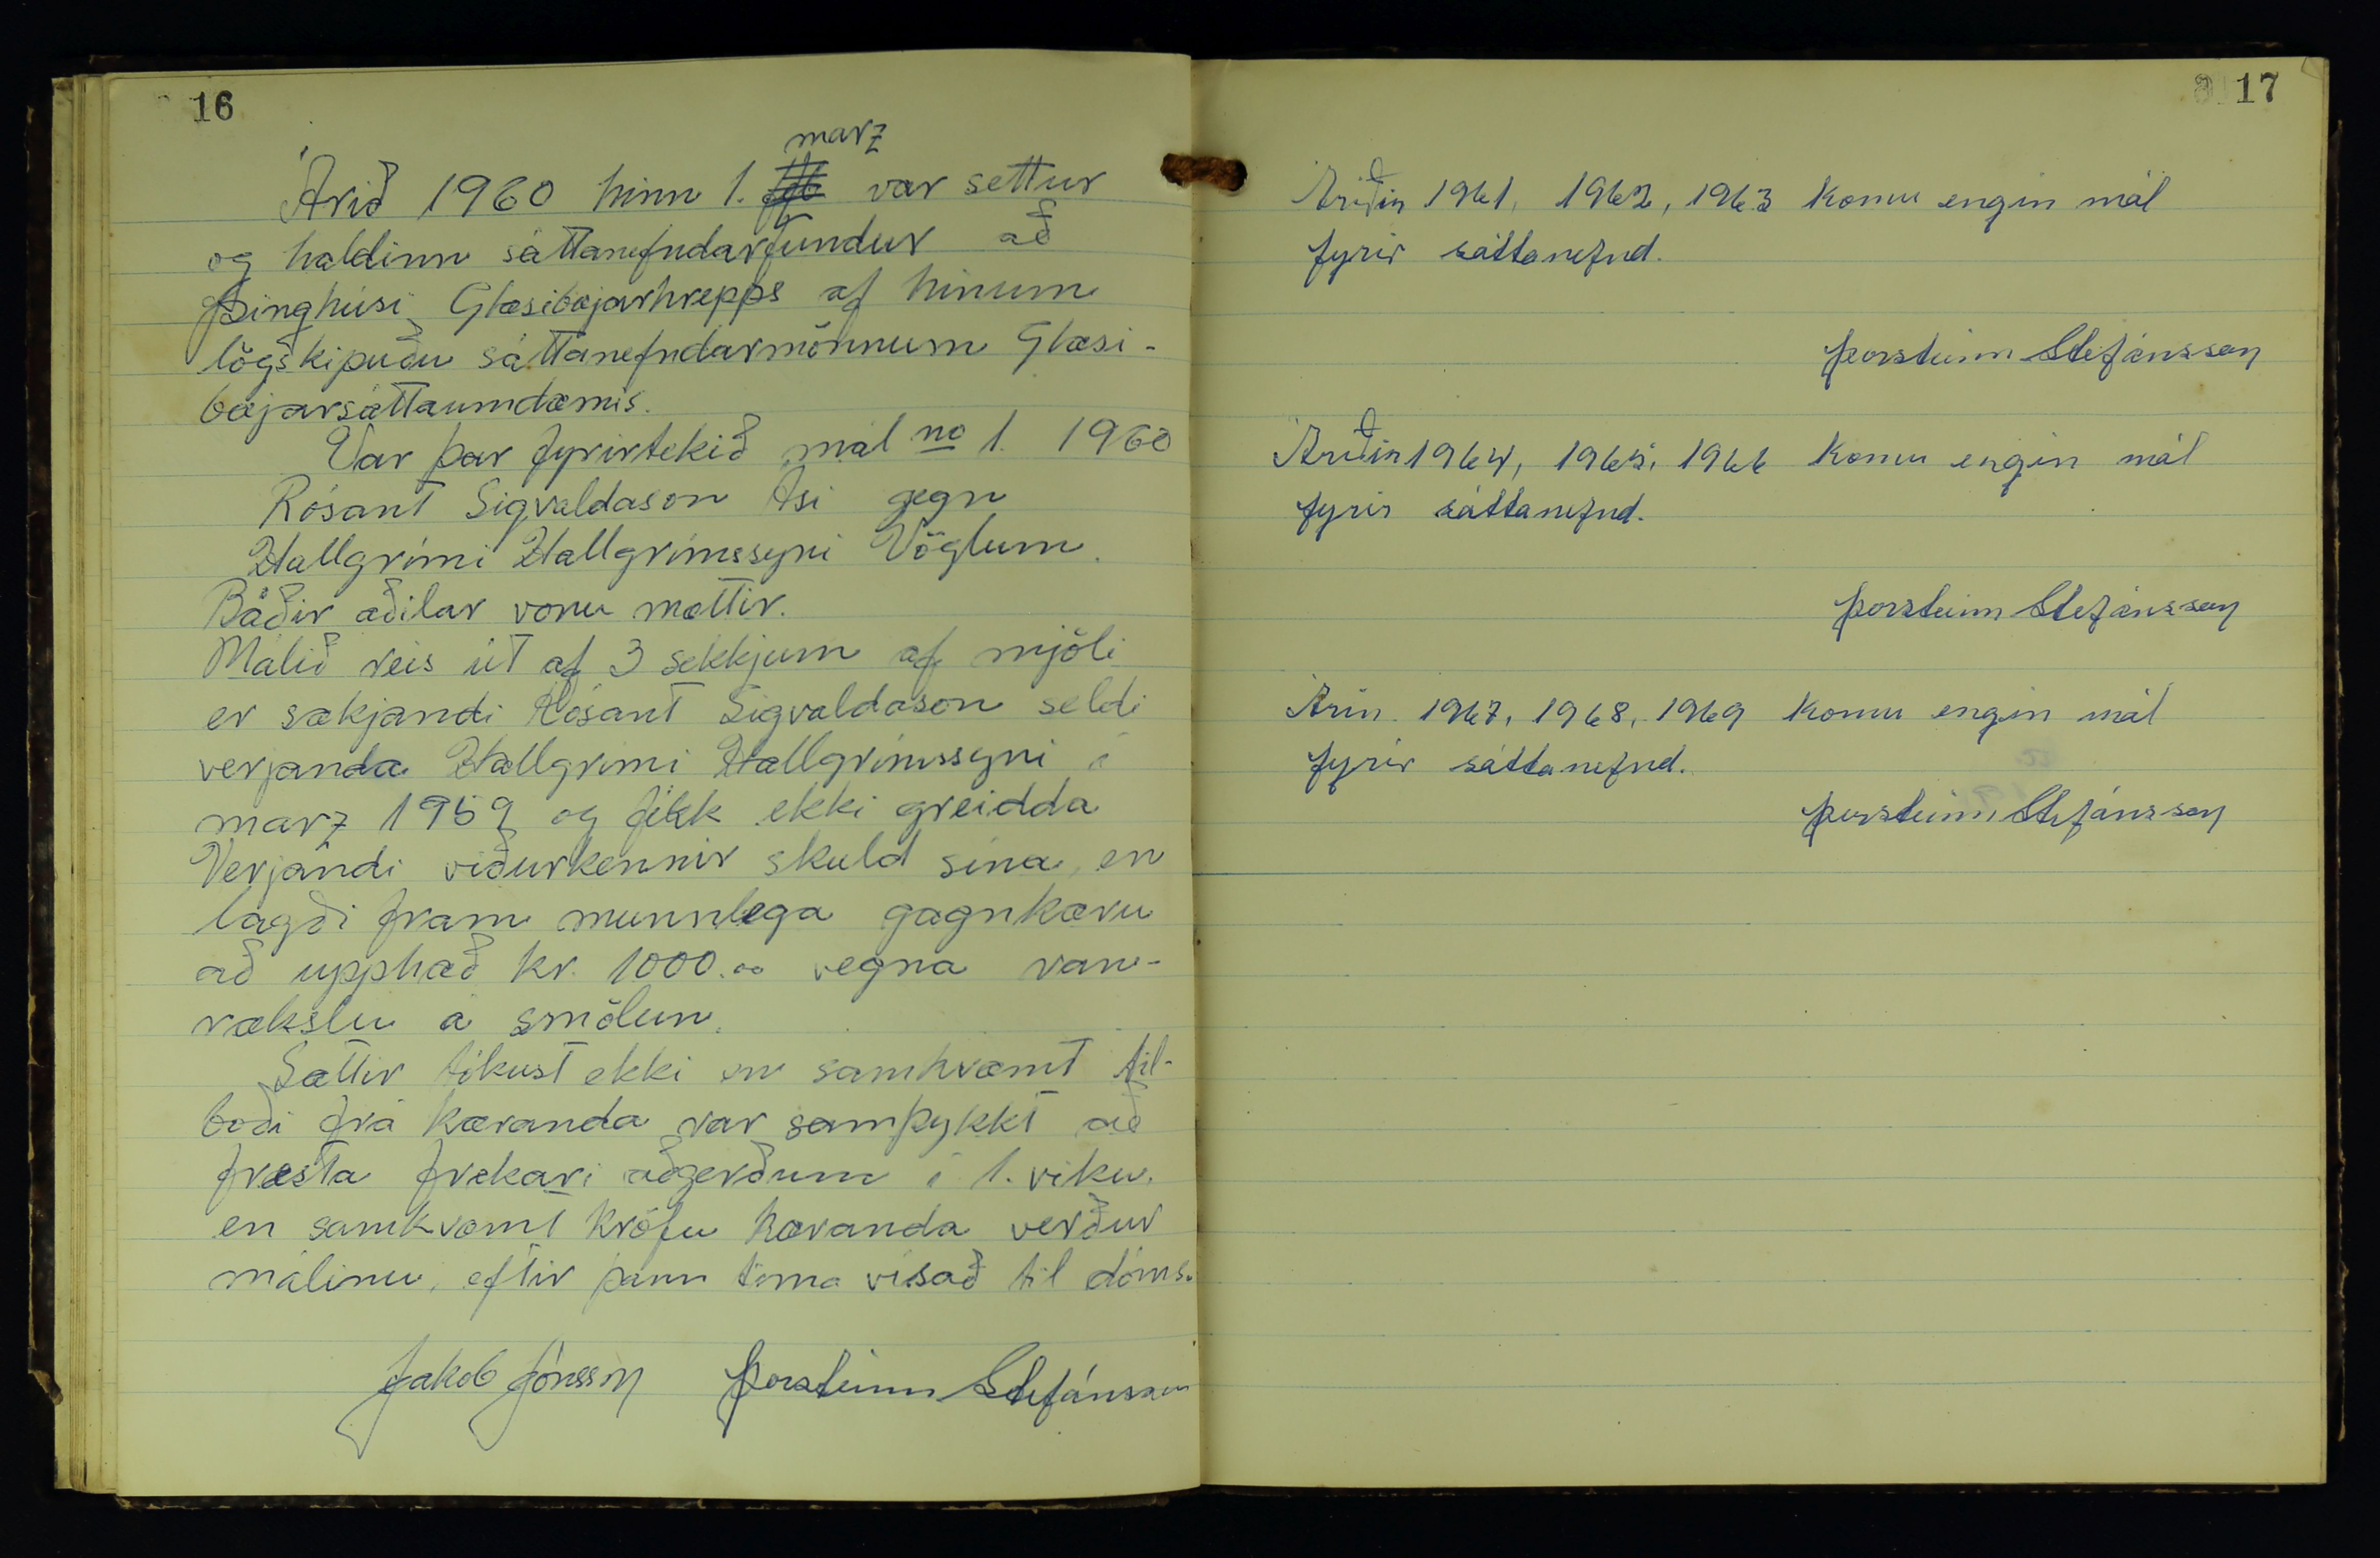 16
marz
Árið 1960 hinn 1. feb var settur
og haldinn sáttanefndarfundur að
Þinghúsi Glæsibæjarhrepps af hinum
lögskipuðu sáttanefndarmönnum Glæsi-
bæjarsáttaumdæmis.
Var þar fyrirtekið mál no 1. 1960
Rósant Sigvaldason Ási gegn
Hallgrími Hallgrímssyni Vöglum.
Báðir aðilar voru mættir.
Málið reis út af 3 sekkjum af mjöli
er sækjandi Rósant Sigvaldason seldi
verjanda Hallgrími Hallgrímssyni í
marz 1959 og fékk ekki greidda
Verjandi viðurkennir skuld sína, en
lagði fram munnlega gagnkæru
að upphæð kr. 1000.00 vegna van-
rækslu á smölun.
Sættir tókust ekki en samkvæmt til-
boði frá kæranda var samþykkt að
fresta frekari aðgerðum í 1. viku.
en samkvæmt kröfu kæranda verður
málinu, eftir þann tíma vísað til dóms.
Jakob Jónsson Þorsteinn Stefánsson
17
Áriðin 1961, 1962, 1963 komu engin mál
fyrir sáttanefnd.
Þorsteinn Stefánsson
Áriðin 1964, 1965, 1966 komu engin mál
fyrir sáttanefnd.
Þorsteinn Stefánsson
Árin 1967, 1968, 1969 komu engin mál
fyrir sáttanefnd.
Þorsteinn Stefánsson